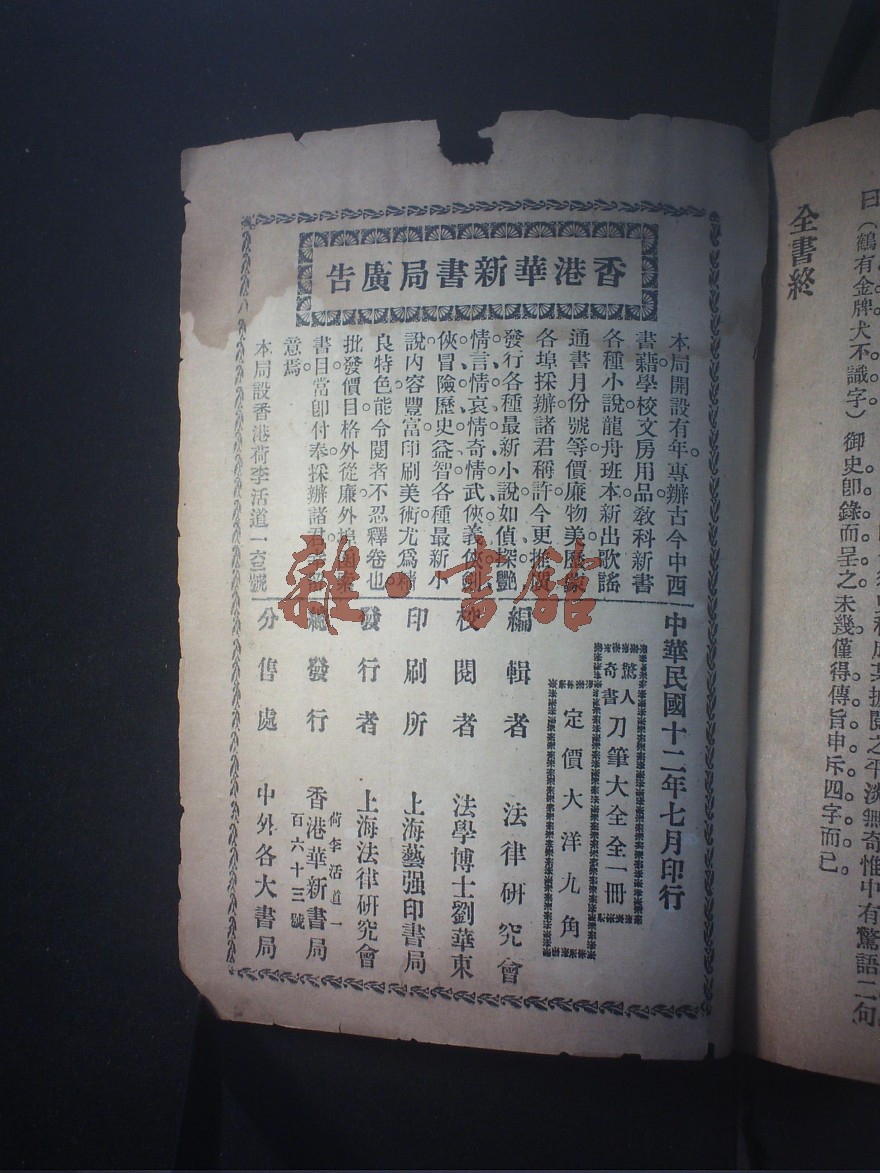 曰(鶴有金牌犬不識字)御史卽錄而呈之未幾僅得傳旨申斥四字而已
之平淡無奇惟中有驚語二句
全書終
香港華新書局廣告
本局開設有年專辦古今中西
書藉學校文房用品教科新書
各種小說龍舟班本新出歌謠
通書月份號等價廉物美歷蒙
各埠採辦諸君稱許今更推廣
發行各種最新小說如偵探艷
情言情哀情奇情武俠義俠劍
俠冒險歷史益智各種最新小
說內容豐富印刷美術尤爲精
良特色能令閱者不忍釋卷也
批發價目格外從廉外埠函索
書目當卽付奉採辦諸君
意焉
本局設香港荷李活道一六三號
中華民國十二年七月印行
驚人奇書 刀筆大全全一冊
定價大洋九角
編輯者 法律研究會
校閱者 法學博士劉華東
印刷所 上海藝强印書局
發行者 上海法律研究會
總發行 荷李活道一百六十三號 香港華新書局
分售處 中外各大書局
雜·書館